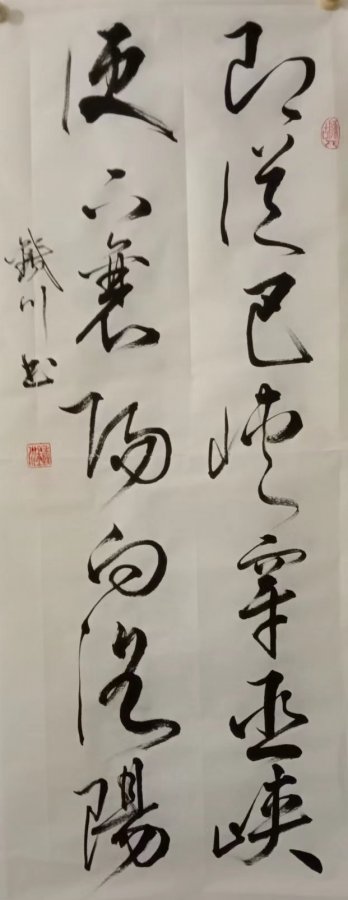 即從巴峽穿巫峽
便下襄陽向洛陽
川書